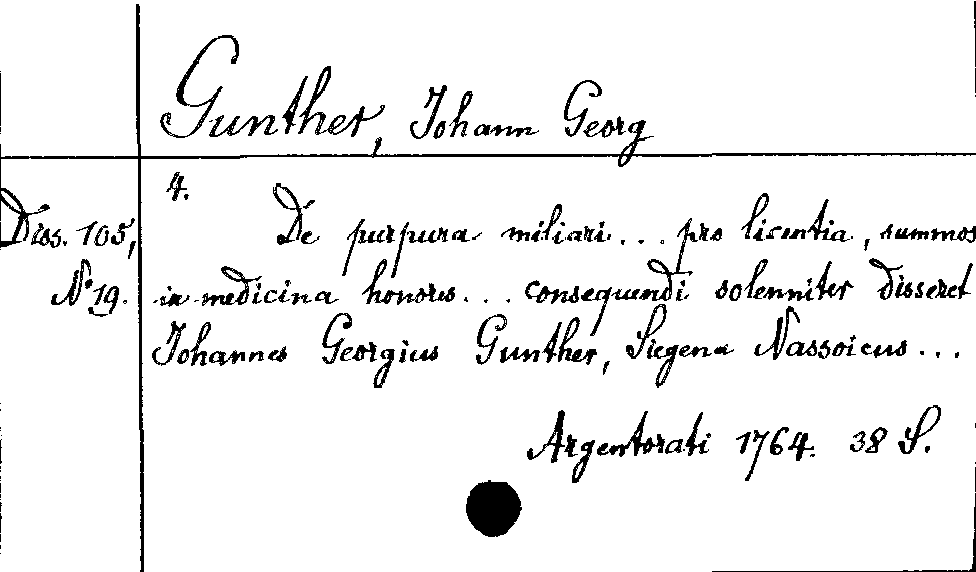 Gunther, Johann Georg
4.
Diss. 105, De purpura miliari... pro licentia, summos
N° 19. in medicina honores... consequendi solenniter disseret
Johannes Georgius Gunther, Siegena Nassoicus...
Argentorati 1764. 38 S.